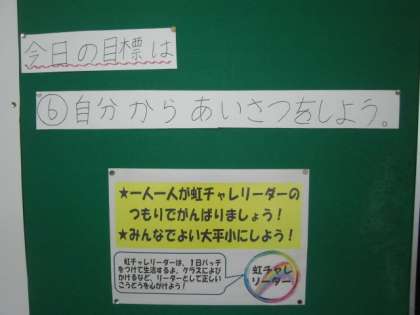 今日の目標は
⑥自分からあいさつをしよう。
★一人一人が虹チャレリーダーの
つもりでがんばりましょう!
★みんなでよい大平小にしよう!
虹チャレリーダーは、1日バッチ
をつけて生活するよ。クラスによび
かけるなど、リーダーとして正しい
こうどうを心がけよう!
虹チャレ
リーダー